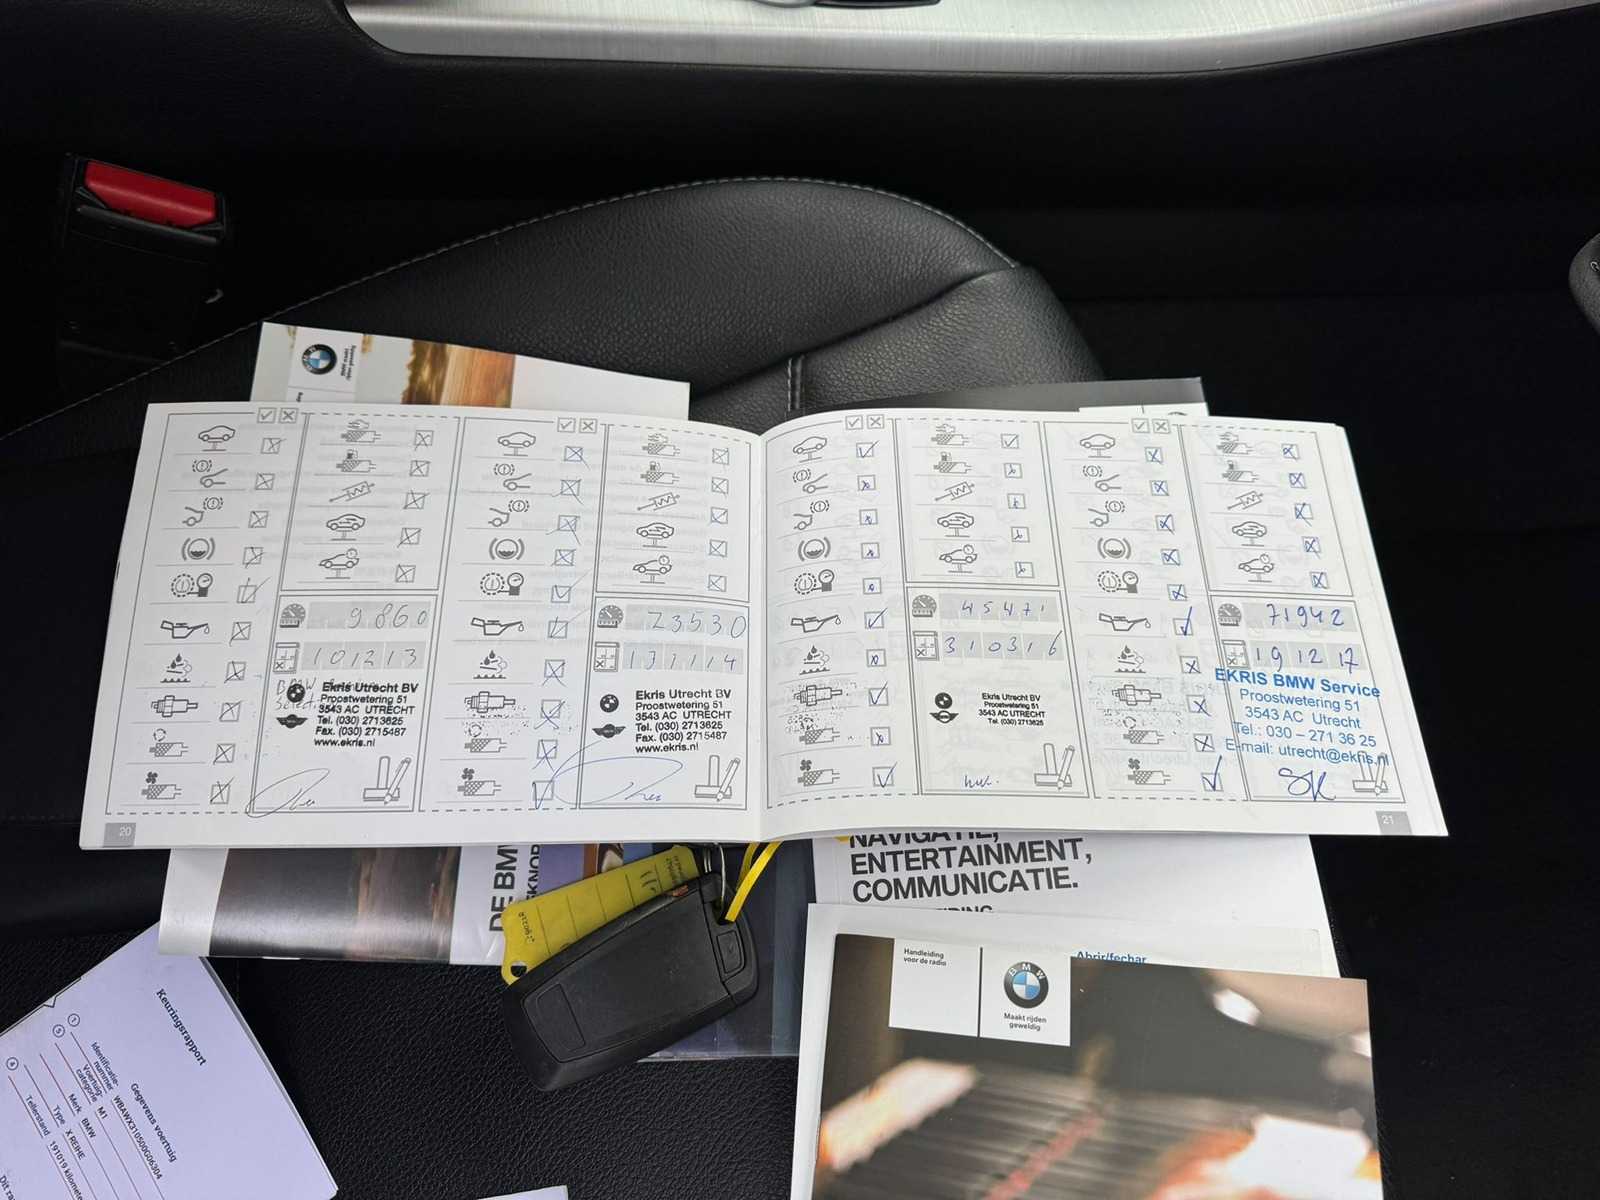 9860
101213
BMW
Select
Ekris Utrecht BV
Proostwetering 51
3543 AC UTRECHT
Tel. (030) 2713625
Fax. (030) 2715487
www.ekris.nl
20
23530
131114
Ekris Utrecht BV
Proostwetering 51
3543 AC UTRECHT
Tel. (030) 2713625
Fax. (030) 2715487
www.ekris.nl
45471
310316
Ekris Utrecht BV
Proostwetering 51
3543 AC UTRECHT
Tel. (030) 2713625
71942
191217
EKRIS BMW Service
Proostwetering 51
3543 AC Utrecht
Tel.: 030 – 271 36 25
E-mail: utrecht@ekris.nl
21
DE BMW
NAVIGATIE,
ENTERTAINMENT,
COMMUNICATIE.
Handleiding
voor de radio
BMW
Maakt rijden
geweldig
Abrir/fechar
Keuringsrapport
Gegevens voertuig
1 Identificatie-
nummer WBAWX31050G06304
5 Voertuig-
categorie M1
Merk BMW
Type X REIHE
4 Tellerstand 191019 kilometer